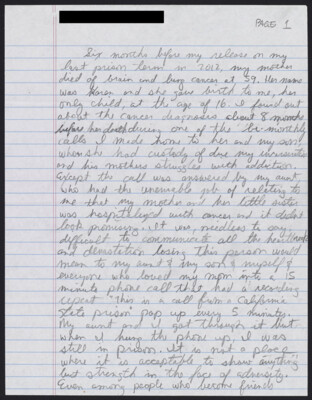 PAGE 1
Six months before my release on my
last prison term in 2012, my mother
died of brain and lung cancer at 59. Her name
was Karen and she gave birth to me, her
only child, at the age of 16. I found out
about the cancer diagnoses about 8 months
before her death during one of the bi-monthly
calls I made home to her and my son
when she had custody of due my incarceration
and his mothers struggle with addiction.
Except the call was answered by my aunt
who had the unenviable job of relating to
me that my mother and her little sister
was hospitalized with cancer and it doesnt
look promising. It was, needless to say,
difficult to communicate all the heartbreak
and devastation losing this person would
mean to my aunt & my son & myself &
everyone who loved my mom into a 15
minute phone call that had a recording
repeat "This is a call from a California
State prison" pop up every 5 minutes.
My aunt and I got through it but
when I hung the phone up, I was
still in prison. It is not a place
where it is acceptable to show anything
but strength in the face of adversity.
Even among people who become friends